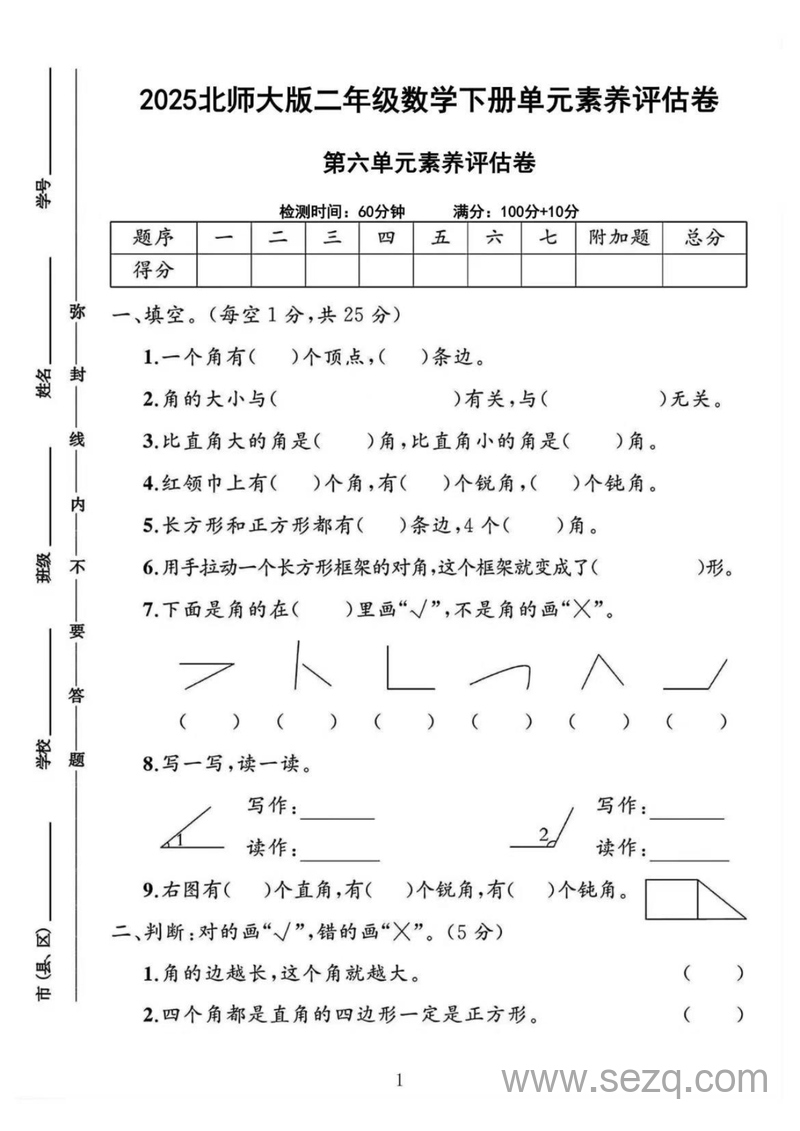 2025北师大版二年级数学下册单元素养评估卷
第六单元素养评估卷
检测时间：60分钟 满分：100分+10分
题序 一 二 三 四 五 六 七 附加题 总分
得分
一、填空。（每空1分，共25分）
1.一个角有( )个顶点，( )条边。
2.角的大小与( )有关，与( )无关。
3.比直角大的角是( )角，比直角小的角是( )角。
4.红领巾上有( )个角，有( )个锐角，( )个钝角。
5.长方形和正方形都有( )条边，4个( )角。
6.用手拉动一个长方形框架的对角，这个框架就变成了( )形。
7.下面是角的在( )里画“√”，不是角的画“╳”。
( ) ( ) ( ) ( ) ( ) ( )
8.写一写，读一读。
1 写作：________ 2 写作：________
读作：________ 读作：________
9.右图有( )个直角，有( )个锐角，有( )个钝角。
二、判断：对的画“√”，错的画“╳”。（5分）
1.角的边越长，这个角就越大。 ( )
2.四个角都是直角的四边形一定是正方形。 ( )
1
www.sezq.com
学号________
姓名________
班级________
学校________
市（县、区）________
弥封线内不要答题